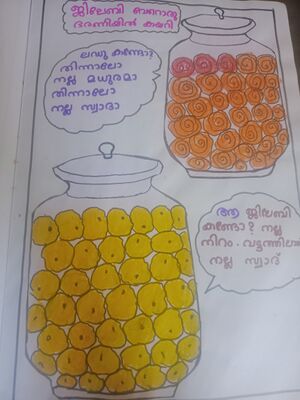 ജിലേബി ബറോഡു
ഭരണിയിൽ കയറി
ലഡു കണ്ടോ?
തിന്നാലോ
നല്ല മധുരമാ
തിന്നാലോ
നല്ല സ്വാദാ
ആ ജിലേബി
കണ്ടോ? നല്ല
നിറം. വട്ടത്തിലാ
നല്ല സ്വാദ്